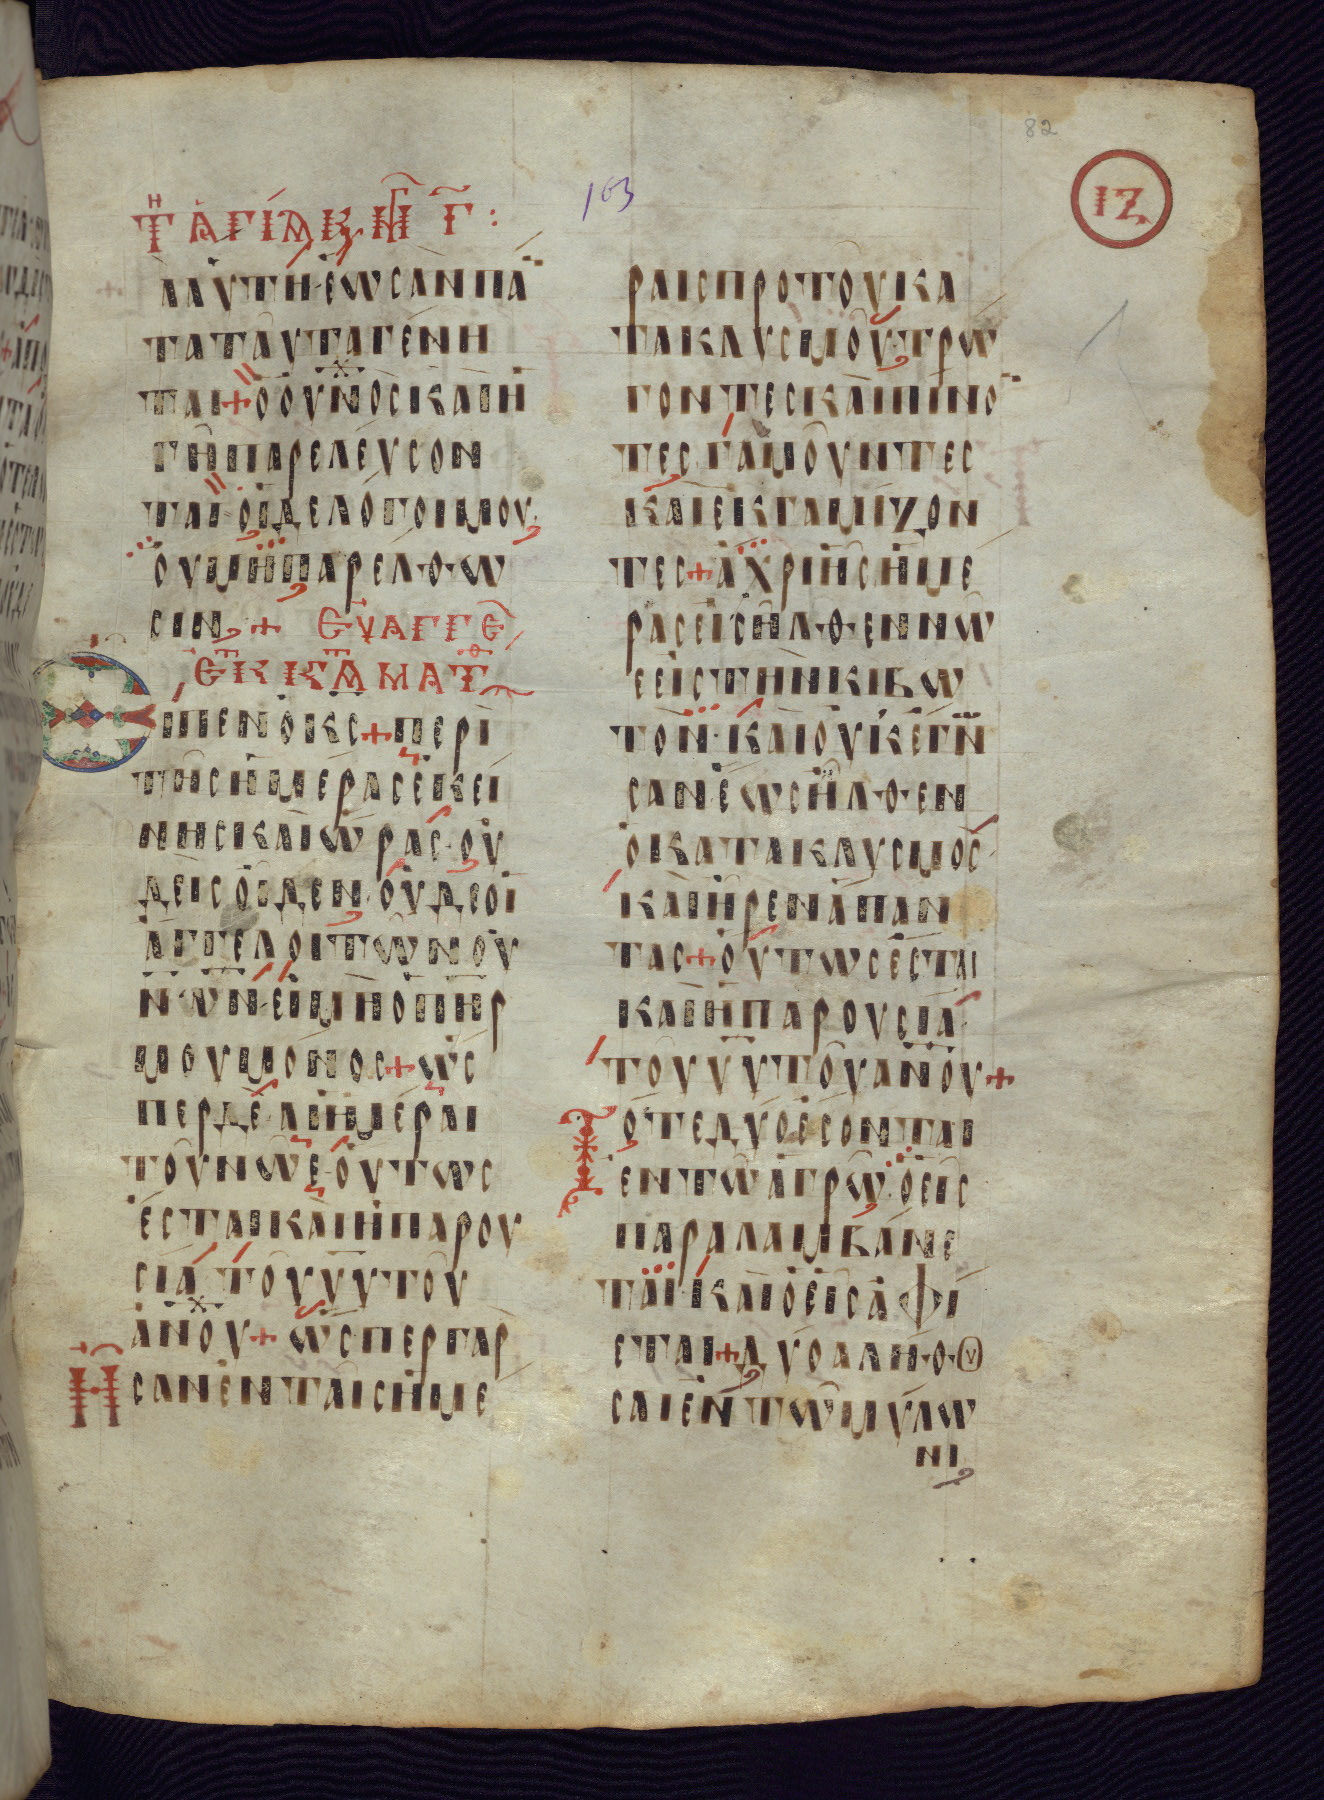 82
ΙΖ
163
ΤΗ ΑΓΙΑ Κ, Μ ΓΓ:
ΑΑΥΤΗ·ΕΩΣΑΝΠΑ
ΤΑΤΑΥΤΑΓΕΝΗ
ΤΑΙ+ΟΟΥΝΟΣΚΑΙΗ
ΓΗΠΑΡΕΛΕΥΣΟΝ
ΤΑΙ·ΟΙΔΕΛΟΓΟΙΜΟΥ·
ΟΥΜΗΠΑΡΕΛΘΩ
ΣΙΝ,+ ΕΥΑΓΓΕ
ΕΚ Κ ΜΑΤΘ
ΕΙΠΕΝΟΚΣ+ΠΕΡΙ
ΤΗΣΗΜΕΡΑΣΕΚΕΙ
ΝΗΣΚΑΙΩΡΑΣ·ΟΥ
ΔΕΙΣΟΙΔΕΝ·ΟΥΔΕΟΙ
ΑΓΓΕΛΟΙΤΩΝΟΥ
ΝΩΝ·ΕΙΜΗΟΠΗΡ
ΜΟΥΜΟΝΟΣ+ΩΣ
ΠΕΡΔΕΑΙΗΜΕΡΑΙ
ΤΟΥΝΩΕ·ΟΥΤΩΣ
ΕΣΤΑΙΚΑΙΗΠΑΡΟΥ
ΣΙΑΤΟΥΥΥΤΟΥ
ΑΝΟΥ+ΩΣΠΕΡΓΑΡ
ΗΣΑΝΕΝΤΑΙΣΗΜΕ
ΡΑΙΣΠΡΟΤΟΥΚΑ
ΤΑΚΛΥΣΜΟΥ·ΤΡΩ
ΓΟΝΤΕΣΚΑΙΠΙΝΟ
ΤΕΣΓΑΜΟΥΝΤΕΣ
ΚΑΙΕΚΓΑΜΙΖΟΝ
ΤΕΣ+ΑΧΡΙΗΣΗΜΕ
ΡΑΣΕΙΣΗΛΘΕΝΝΩ
ΕΕΙΣΤΗΝΚΙΒΩ
ΤΟΝ·ΚΑΙΟΥΚΕΓΝ
ΣΑΝ·ΕΩΣΗΛΘΕΝ
ΟΚΑΤΑΚΛΥΣΜΟΣ·
ΚΑΙΗΡΕΝΑΠΑΝ
ΤΑΣ+ΟΥΤΩΣΕΣΤΑΙ
ΚΑΙΗΠΑΡΟΥΣΙΑ
ΤΟΥΥΥΤΟΥΑΝΟΥ+
ΤΟΤΕΔΥΟΕΣΟΝΤΑΙ
ΕΝΤΩΑΓΡΩ·ΟΕΙΣ
ΠΑΡΑΛΑΜΒΑΝΕ
ΤΑΙ·ΚΑΙΟΕΙΣΑΦΙ
ΕΤΑΙ+ΔΥΟΑΛΗΘΟΥ
ΣΑΙΕΝΤΩΜΥΛΩ
ΝΙ